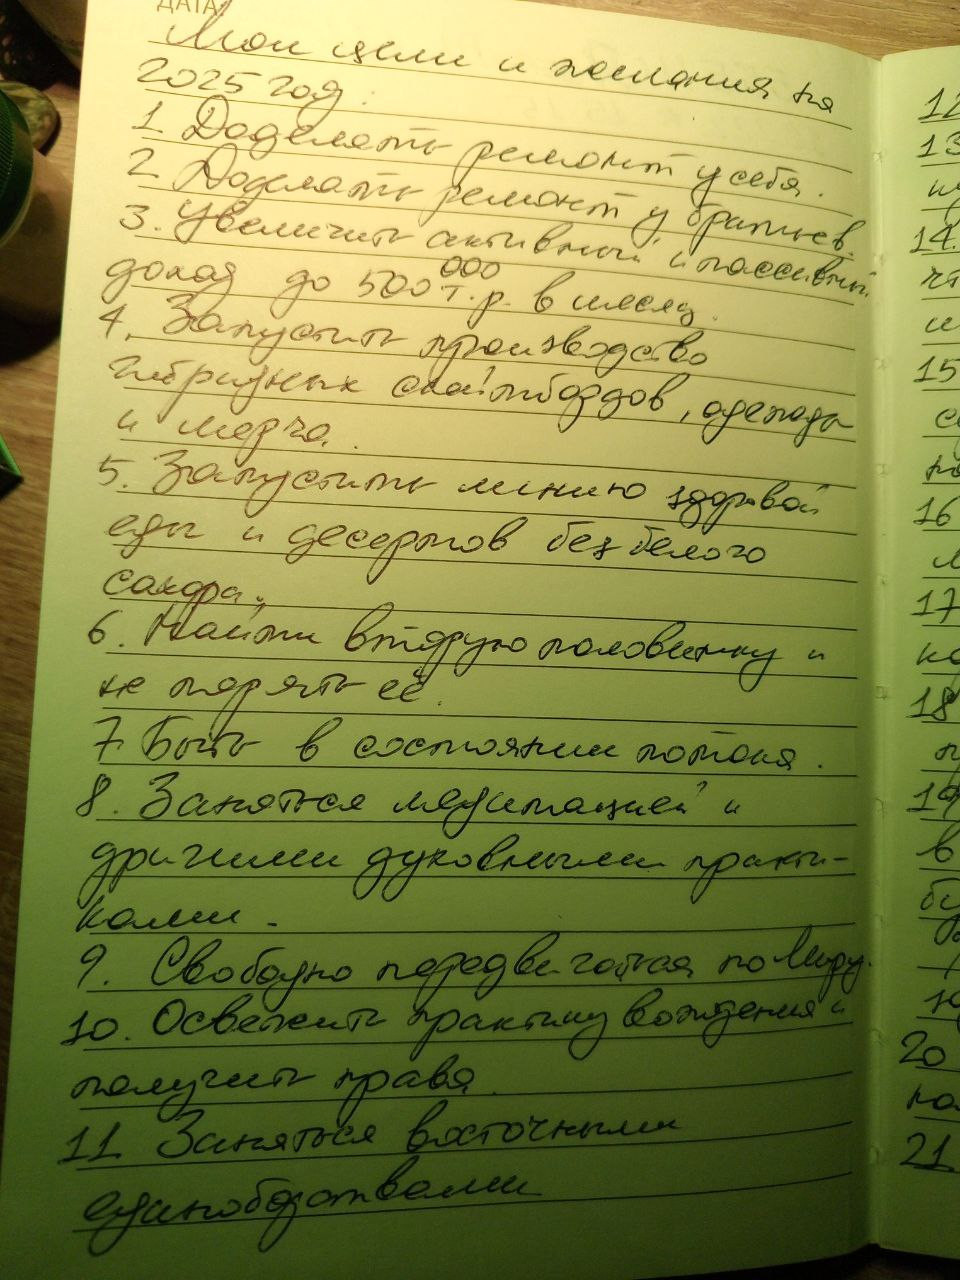 ДАТА:
Мои цели и желания на
2025 год:
1. Доделать ремонт у себя.
2. Доделать ремонт у братьев
3. Увеличить активный и пассивный
доход до 500 000 т.р. в месяц.
4. Запустить производство
гибридных скайтбордов, одежды
и мерча.
5. Запустить линию здоровой
еды и десертов без белого
сахара.
6. Найти вторую половинку и
не терять её.
7. Быть в состоянии потока.
8. Заняться медитацией и
другими духовными практи-
ками.
9. Свободно передвигаться по Миру.
10. Освежить практику вождения и
получить права
11. Заняться восточными
единоборствами
12
13
14.
15
16
17
18
19
20
21